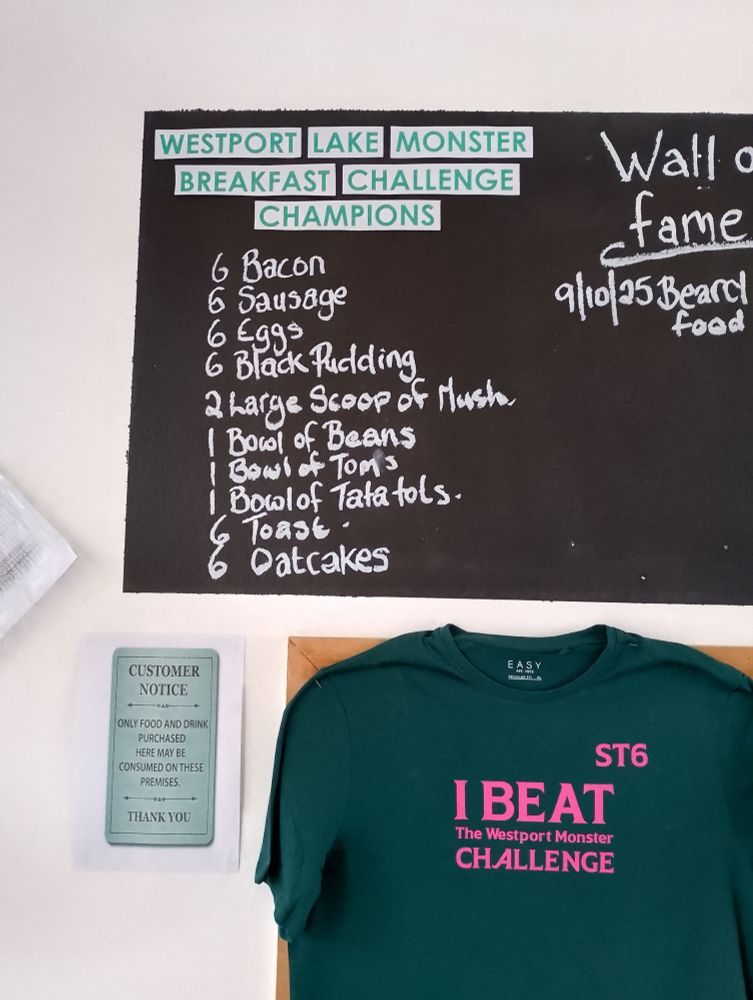 WESTPORT LAKE MONSTER
BREAKFAST CHALLENGE
CHAMPIONS
6 Bacon
6 Sausage
6 Eggs
6 Black Pudding
2 Large Scoop of Mush.
1 Bowl of Beans
1 Bowl of Tom's
1 Bowl of Tatatots.
6 Toast.
6 Oatcakes
Wall o
fame
9/10/25 Beard
food
CUSTOMER
NOTICE
ONLY FOOD AND DRINK
PURCHASED
HERE MAY BE
CONSUMED ON THESE
PREMISES.
THANK YOU
EASY
REGULAR FIT XL
ST6
I BEAT
The Westport Monster
CHALLENGE